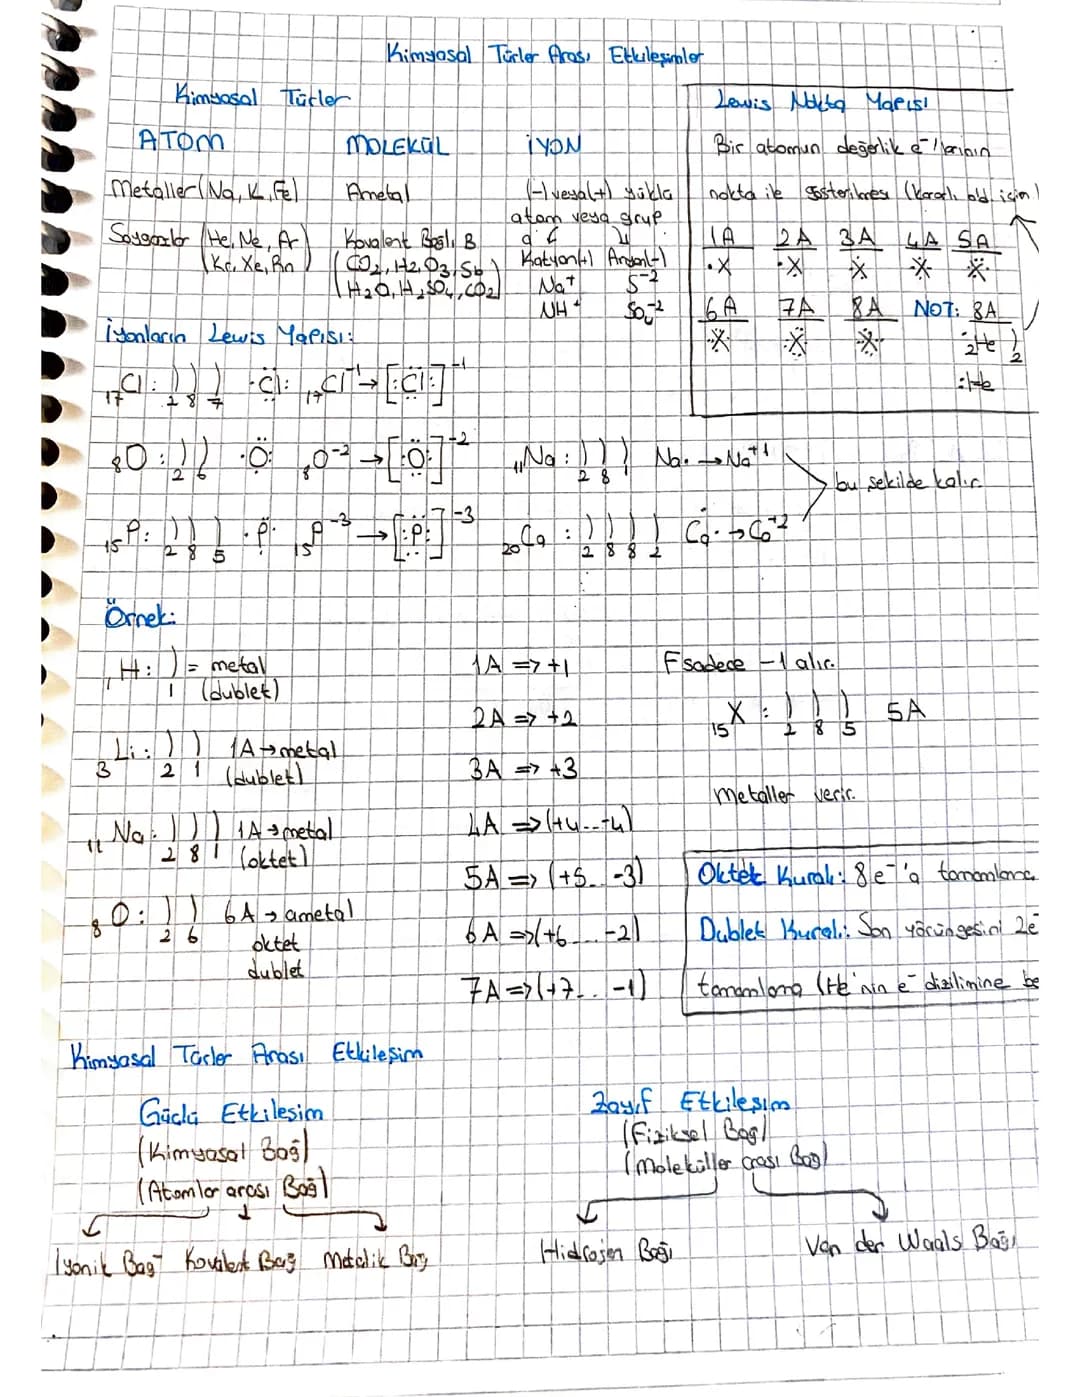 Kimyasal Türler Arası Etkileşimler
Kimyasal Türler
ATOM
Metaller (Na, K, Fe)
Soygazlar (He, Ne, Ar
Kr, Xe, Rn)
MOLEKÜL
Ametal
Kovalent Bağlı B
(CO2, H2, O3, S8
H2O, H2SO4, CO2)
İYON
(-) veya (+) yüklü
atom veya grup
Katyon(+) Anyon(-)
Na+ S-2
NH+ SO4-2
Lewis Nokta Yapısı
Bir atomun değerlik e-'lerinin
nokta ile gösterilmesi (kararlı old. için)
1A 2A 3A 4A 5A
·X ·X· X X X
6A 7A 8A NOT: 8A
X X X 2He ) 2
:He
İyonların Lewis Yapısı:
17Cl: ) ) ) 2 8 7 ·Cl: 17Cl-1 → [:Cl:]-1
8O: ) ) 2 6 ·O: 8O-2 → [:O:]-2 11Na: ) ) ) 2 8 1 Na· → Na+1
bu şekilde kalır
15P: ) ) ) 2 8 5 ·P· 15P-3 → [:P:]-3 20Ca: ) ) ) ) 2 8 8 2 Ca· → Ca+2
Örnek:
1H: ) 1 = metal
(dublet)
3Li: ) ) 2 1 1A → metal
(dublet)
11Na: ) ) ) 2 8 1 1A → metal
(oktet)
8O: ) ) 2 6 6A → ametal
oktet
dublet
1A => +1
2A => +2
3A => +3
4A => (+4...-4)
5A => (+5...-3)
6A => (+6....-2)
7A => (+7...-1)
F sadece -1 alır.
15X: ) ) ) 2 8 5 5A
Metaller verir.
Oktet Kuralı: 8 e-'a tamamlama
Dublet Kuralı: Son yörüngesini 2e-
tamamlama (He'nin e- dizilimine be
Kimyasal Türler Arası Etkileşim
Güçlü Etkileşim
(Kimyasal Bağ)
(Atomlar arası Bağ)
İyonik Bağ Kovalent Bağ Metalik Bağ
Zayıf Etkileşim
(Fiziksel Bağ)
(Moleküller arası Bağ)
Hidrojen Bağı
Van der Waals Bağı